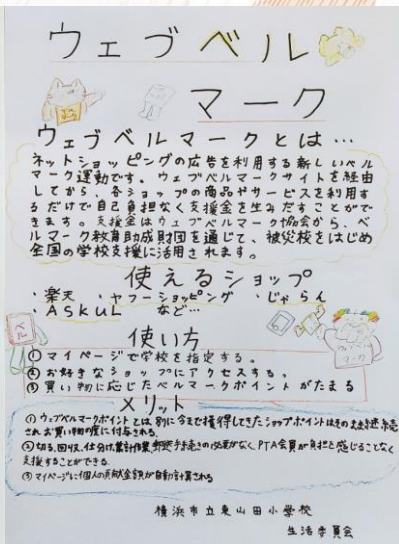 ウェブベル
マーク
ウェブベルマークとは…
ネットショッピングの広告を利用する新しいベル
マーク運動です。ウェブベルマークサイトを経由
してから、各ショップの商品やサービスを利用す
るだけで自己負担なく支援金を生みだすことがで
きます。支援金はウェブベルマーク協会から、ベ
ルマーク教育助成財団を通じて、被災校をはじめ
全国の学校支援に活用されます。
使えるショップ
・楽天 ・ヤフーショッピング ・じゃらん
・ASKUL など…
ベル
使い方
① マイページで学校を指定する。
② お好きなショップにアクセスする。
③ 買い物に応じたベルマークポイントがたまる
メリット
① ウェブベルマークポイントとは別に今まで獲得してきたショップポイントはそのまま継続
されお買い物の度に付与される
② 切る、回収、仕分け、集計作業、郵送手続きの必要がなく、PTA会員が負担と感じることなく
支援することができる
③ マイページに個人の貢献金額が自動計算される
横浜市立東山田小学校
生活委員会